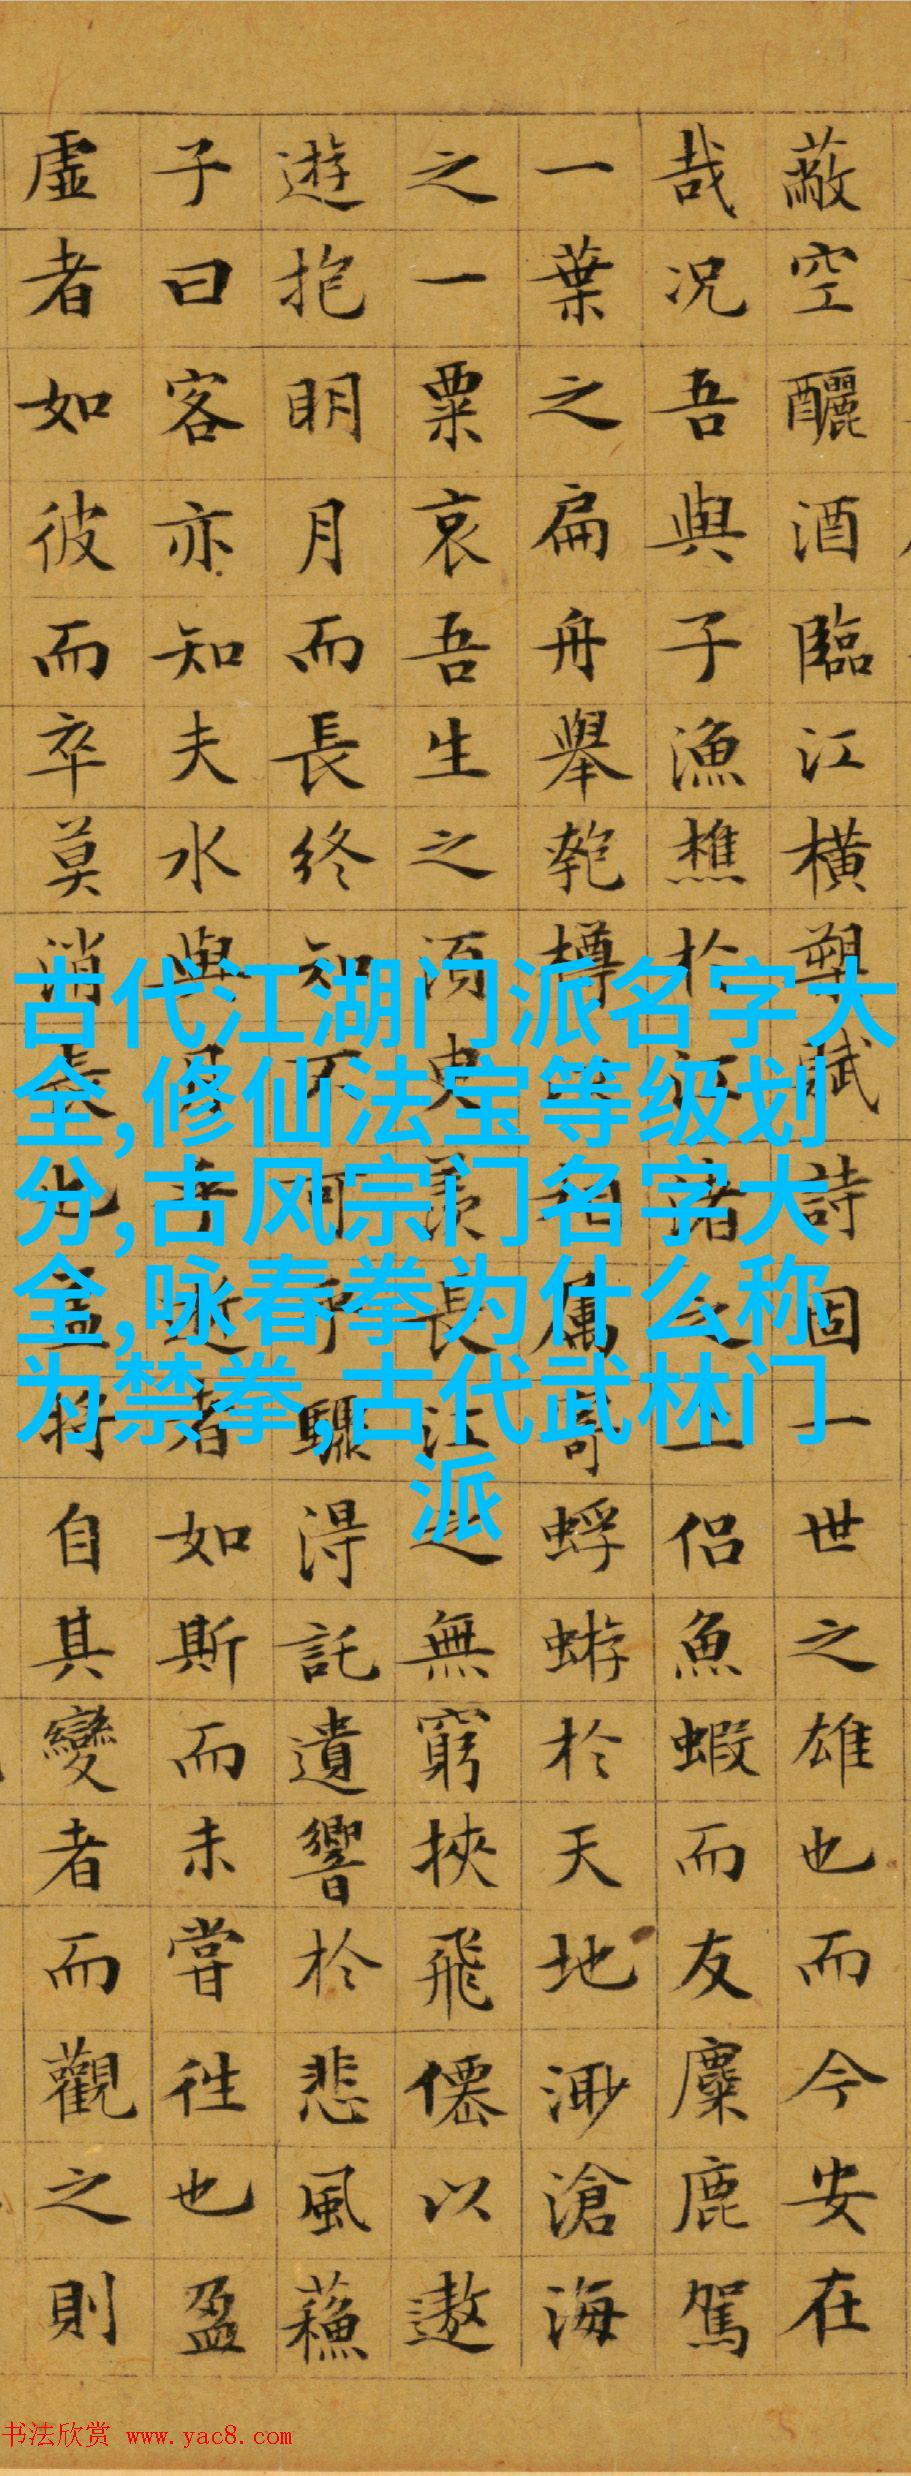 蔽空釃酒臨江橫槊賦詩固一世之雄也而今安在
哉况吾與子漁樵於江渚之上侶魚蝦而友麋鹿駕
一葉之扁舟舉匏樽以相属寄蜉蝣於天地渺滄海
之一粟哀吾生之須臾羨長江之無窮挾飛僊以遨
遊抱明月而長終知不可乎驟得託遺響於悲風蘓
子曰客亦知夫水與月乎逝者如斯而未嘗往也盈
虛者如彼而卒莫消長也蓋將自其變者而觀之則
古代江湖门派名字大
全,修仙法宝等级划
分,古风宗门名字大
全,咏春拳为什么称
为禁拳,古代武林门
派
书法欣赏 www.yac8.com